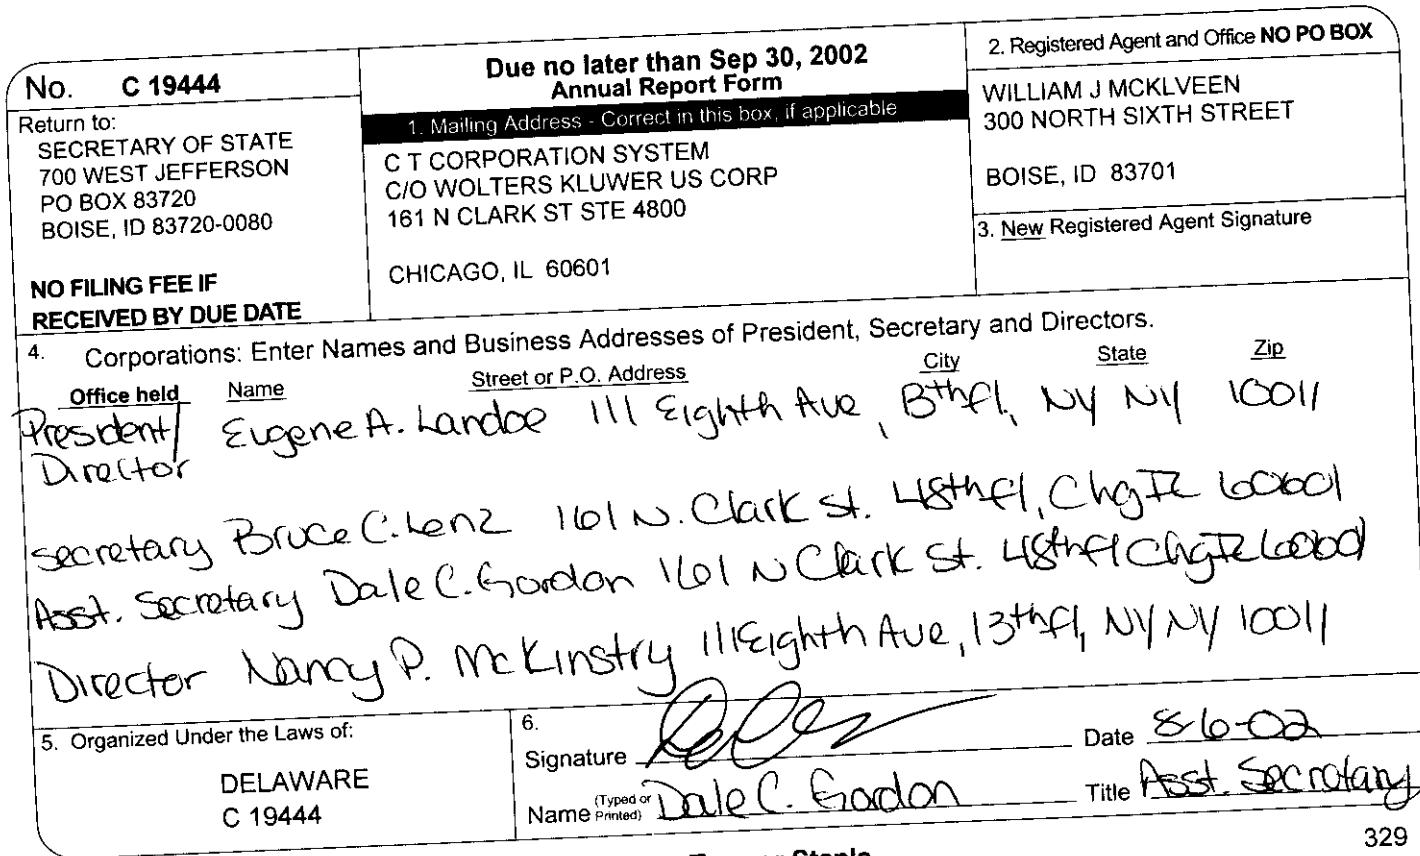 No. C 19444
Return to:
SECRETARY OF STATE
700 WEST JEFFERSON
PO BOX 83720
BOISE, ID 83720-0080
NO FILING FEE IF
RECEIVED BY DUE DATE
Due no later than Sep 30, 2002
Annual Report Form
1. Mailing Address - Correct in this box, if applicable
C T CORPORATION SYSTEM
C/O WOLTERS KLUWER US CORP
161 N CLARK ST STE 4800
CHICAGO, IL 60601
2. Registered Agent and Office NO PO BOX
WILLIAM J MCKLVEEN
300 NORTH SIXTH STREET
BOISE, ID 83701
3. New Registered Agent Signature
4. Corporations: Enter Names and Business Addresses of President, Secretary and Directors.
Office held Name Street or P.O. Address City State Zip
President/ Eugene A. Landoe 111 Eighth Ave, 13th fl, NY NY 10011
Director
Secretary Bruce C. Lenz 161 N. Clark St. 48th fl, Chg IL 60601
Asst. Secretary Dale C. Gordon 161 N Clark St. 48th fl Chg IL 60601
Director Nancy P. McKinstry 111 Eighth Ave, 13th fl, NY NY 10011
5. Organized Under the Laws of:
DELAWARE
C 19444
6.
Signature Date 8-6-02
Name (Typed or Printed) Dale C. Gordon Title Asst. Secretary
329